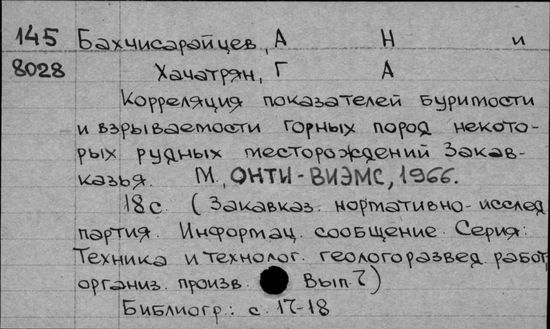 145 Бахчисарайцев, А Н и
8028 Хачатрян, Г А
Корреляция показателей буримости
и взрываемости горных пород некото-
рых рудных месторождений Закав-
казья. М., ОНТИ-ВИЭМС, 1966.
18 с. (Закавказ. нормативно-исслед
партия. Информац. сообщение. Серия:
Техника и технолог. геологоразвед. работ,
организ. произв. Вып. 7)
Библиогр.: с. 17-18